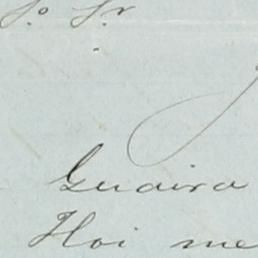 Sr
Guaira
Hoi me